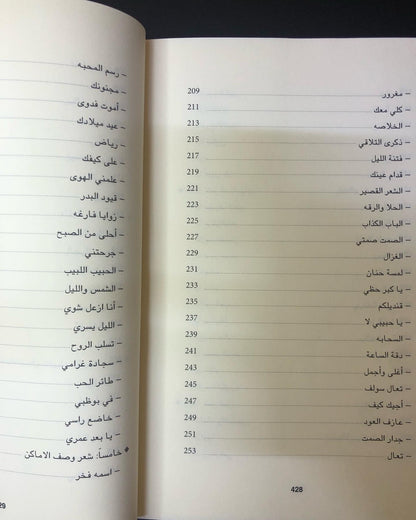 – مغرور 209
– كلي معك 211
– الخلاصه 213
– ذكرى التلاقي 215
– فتنة الليل 217
– قدام عينك 219
– الشعر القصير 221
– الحلا والرقه 223
– الباب الكذاب 225
– الصمت صمتي 227
– الغزال 229
– لمسة حنان 231
– يا كبر حظي 233
– قنديلكم 235
– يا حبيبي لا 237
– السحابه 239
– دقة الساعة 241
– أغلى وأجمل 243
– تعال سولف 245
– أجيك كيف 247
– عازف العود 249
– جدار الصمت 251
– تعال 253
428
– رسم المحبه
– مجنونك
– أموت فدوى
– عيد ميلادك
– رياض
– على كيفك
– علمني الهوى
– قيود البدر
– زوايا فارغه
– أحلى من الصبح
– جرحتني
– الحبيب اللبيب
– الشمس والليل
– أنا ازعل شوي
– الليل يسري
– تسلب الروح
– سجادة غرامي
– طائر الحب
– في بوظبي
– خاضع راسي
– يا بعد عمري
◆ خامساً: شعر وصف الاماكن
– اسمه فخر
29